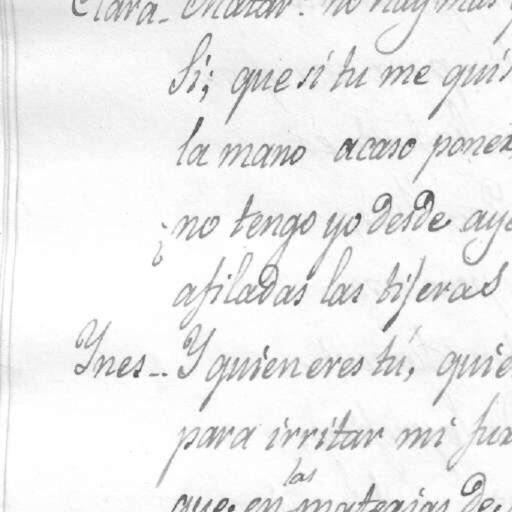 Clara- Matar. no hay mas
Si; que si tu me quis
la mano acaso poner
¿no tengo yo desde aye
afiladas las tijeras
Ynes-- Y quien eres tú, quie
para irritar mi fur
las
que, en materias de